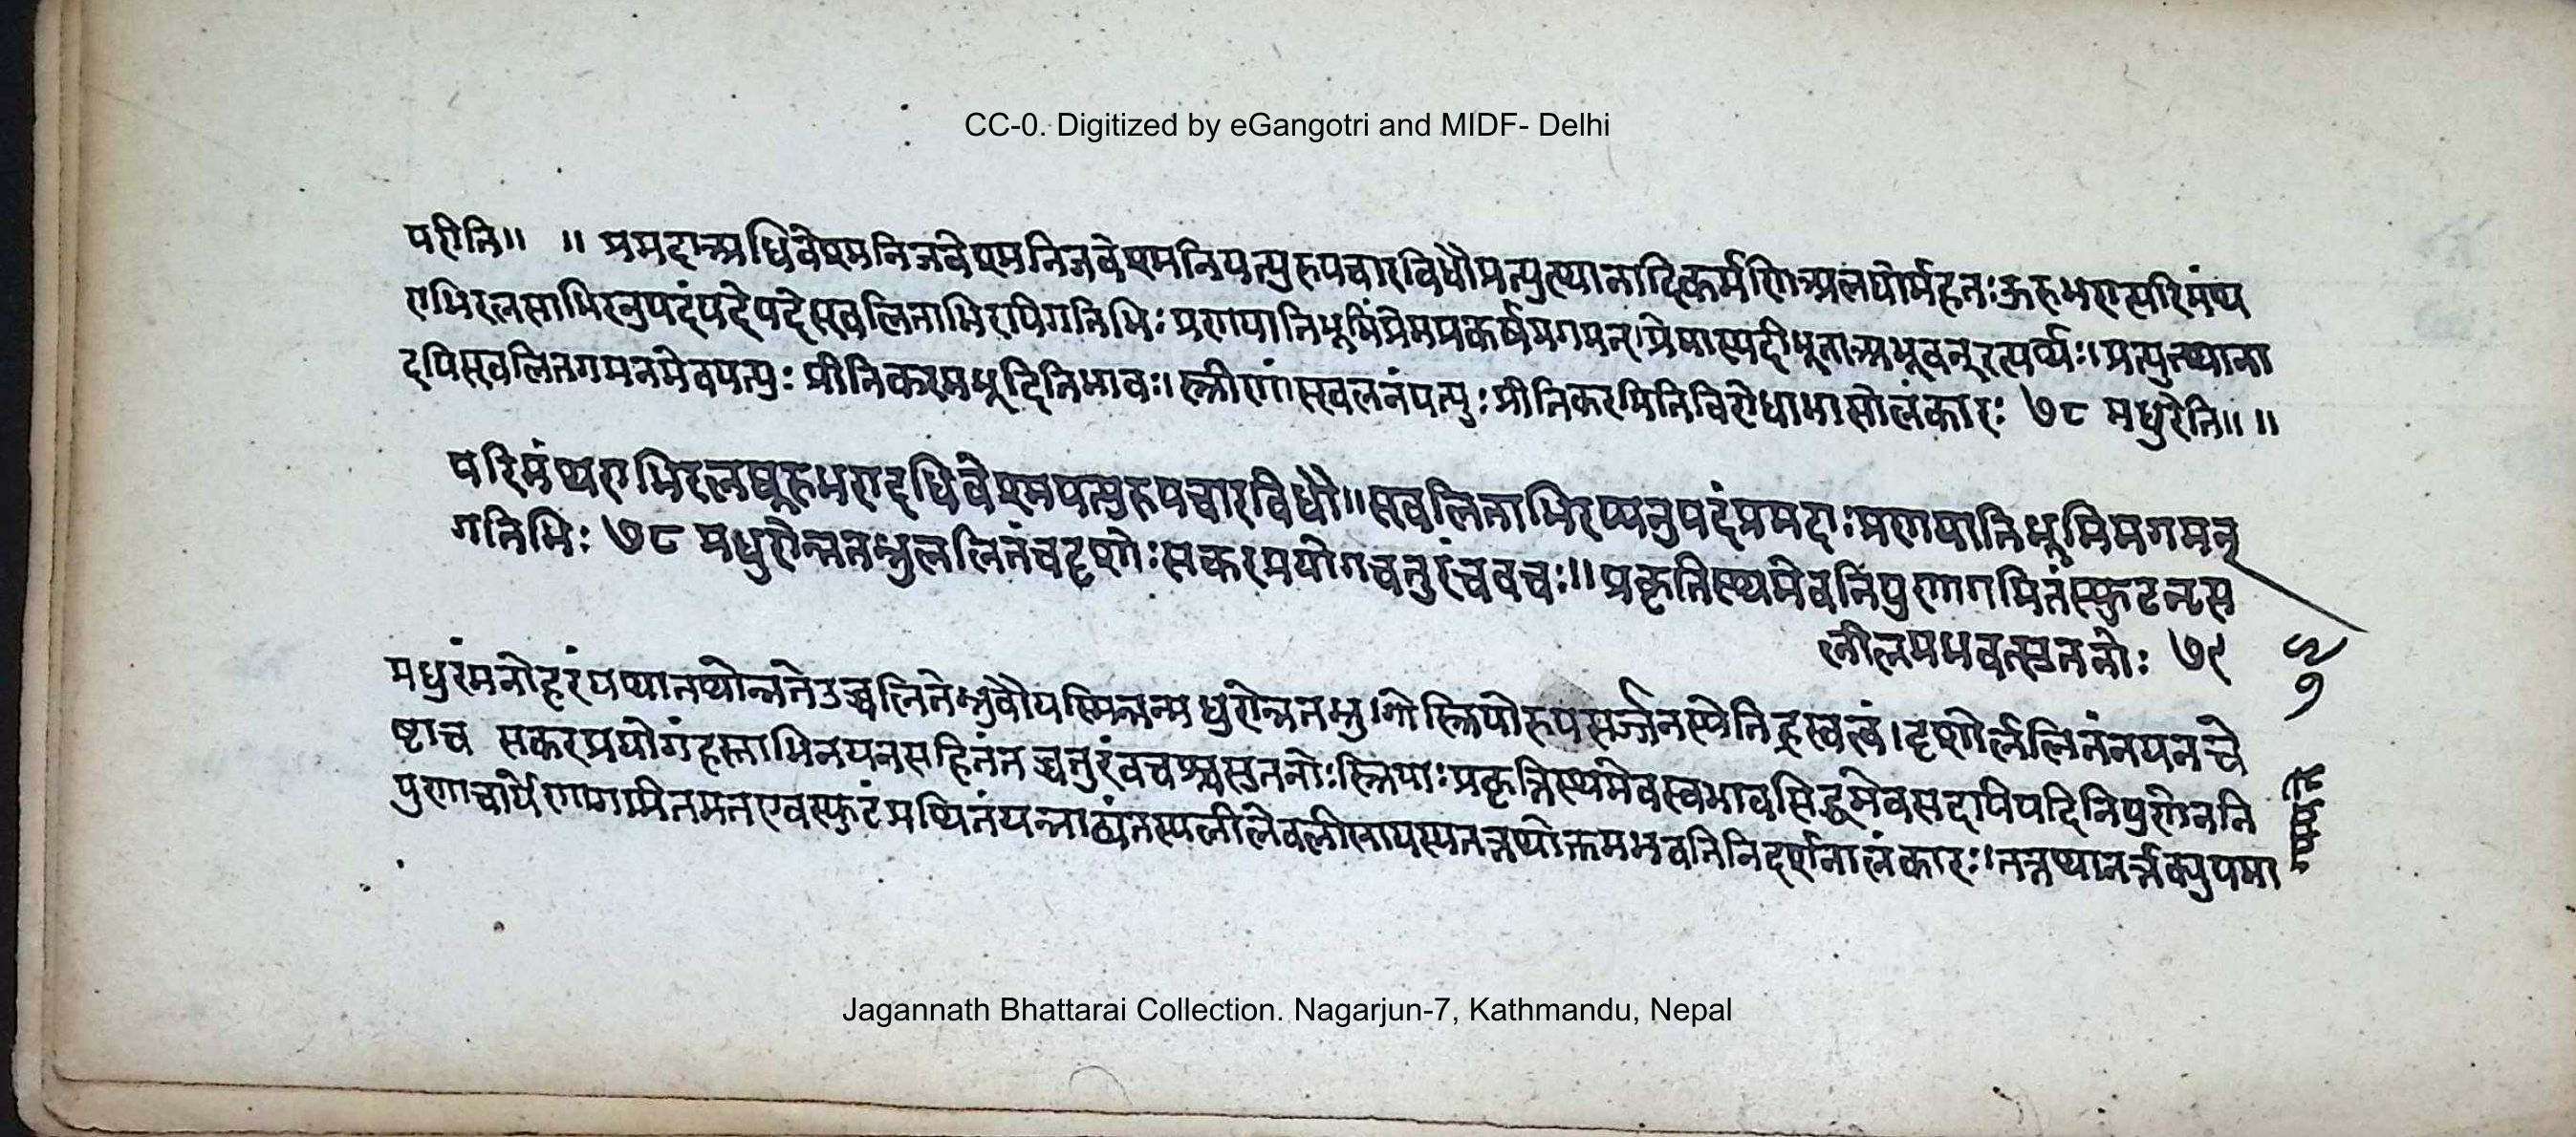 CC-0. Digitized by eGangotri and MIDF- Delhi
परीति॥ ॥ प्रमदाअधिवेश्मनिजवेश्मनिजवेश्मनिपत्युरुपचारविधौप्रत्युत्थानादिकर्मणिअलघोर्महतःऊरुभरात्परिमंथ
राभिरलसाभिरनुपदंपदेपदेस्खलिताभिरपिगतिभिः प्रणयातिभूमिंप्रेमप्रकर्षमगमन्।प्रेमास्पदीभूताअभूवन्नित्यर्थः।प्रत्युत्थाना
दपिस्खलितगमनमेवपत्युः प्रीतिकरमभूदितिभावः।स्त्रीणांस्खलनंपत्युः प्रीतिकरमितिविरोधाभासोलंकारः ७८ मधुरेति॥ ॥
परिमंथराभिरलघूरुभरादधिवेश्मपत्युरुपचारविधौ॥स्खलिताभिरप्यनुपदंप्रमदाःप्रणयातिभूमिमगमन्
गतिभिः ७८ मधुरोन्नतभ्रुललितंचदृशोःसकरप्रयोगचतुरंचवचः॥प्रकृतिस्थमेवनिपुणागमितंस्फुटनृत्य
लीलमभवत्सुतनोः ७९
मधुरंमनोहरंयथातथोन्नतेउच्चलितेभ्रुवौयस्मिन्तन्मधुरोन्नतभ्रु।गोस्त्रियोरुपसर्जनस्येतिह्रस्वत्वं।दृशोर्ललितंनयनचे
ष्टाच सकरप्रयोगंहस्ताभिनयनसहितंतच्चतुरंवचश्चसुतनोःस्त्रियाःप्रकृतिस्थमेवस्वभावसिद्धमेवसदापियदितिपुरातननि
पुणाचार्येणागमितमतएवस्फुटंप्रथितंयन्नाट्यंतस्यलीलेवलीलायस्यतत्तथोक्तमभवतिनिदर्शनालंकारः।
Jagannath Bhattarai Collection. Nagarjun-7, Kathmandu, Nepal